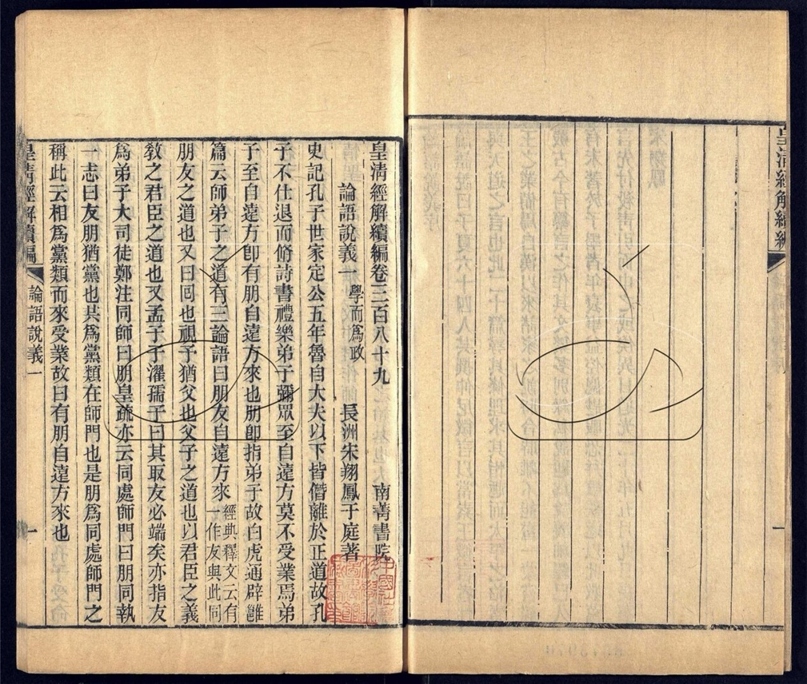 皇清經解續編
皇清經解續編卷三百八十九
南菁書院
論語說義一
學而為政
長洲宋翔鳳于庭著
史記孔子世家定公五年魯自大夫以下皆僭離於正道故孔
子不仕退而脩詩書禮樂弟子彌眾至自遠方莫不受業焉弟
子至自遠方卽有朋自遠方來也朋卽指弟子故白虎通辟雝
篇云師弟子之道有三論語曰朋友自遠方來
經典釋文云有
一作友與此同
朋友之道也又曰回也視予猶父也父子之道也以君臣之義
教之君臣之道也又孟子子濯孺子曰其取友必端矣亦指友
為弟子大司徒鄭注同師曰朋皇疏亦云同處師門曰朋同執
一志曰友朋猶黨也共為黨類在師門也是朋為同處師門之
稱此云相為黨類而來受業故曰有朋自遠方來也
皇清經解續編
論語說義一
一